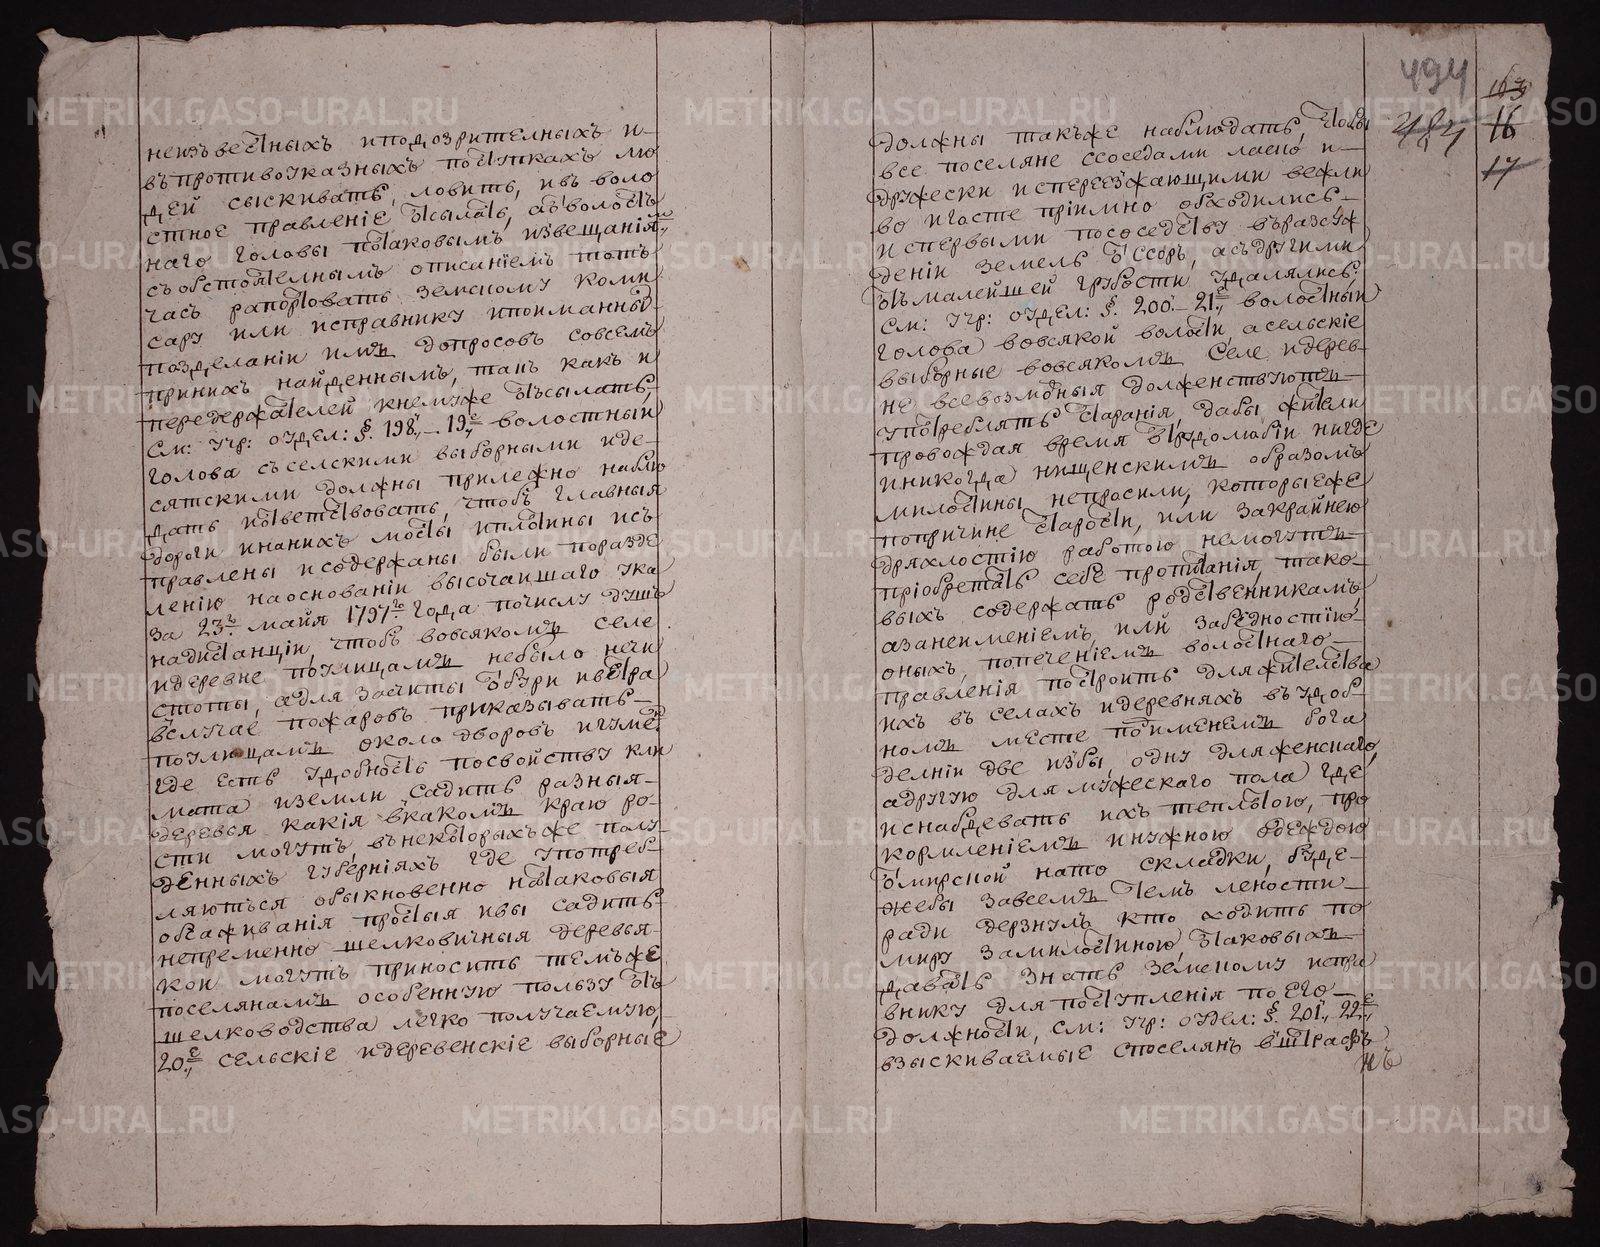 неизъвестныхъ иподозрителныхъ и-
въпротивоуказныхъ поступкахъ лю
дей сыскивать, ловить, ивъ воло
стное правленіе отсылать, аволост
наго головы потаковымъ извещанія
съобстоятелнымъ описаніемъ тотъ
часъ рапортовать земскому коми
сару или исправнику ипоиманныхъ
поздѣланіи имъ допросовъ совсемъ
принихъ найденнымъ, такъ какъ и
передержателей кнемуже отъсылать,
См: Учр: отдел: §. 198. – 19е волостныи
голова съселскими выборными иде-
сятскими должны прилежно наблю
дать иответствовать, чтобъ главныя
дороги инанихъ мосты иплотины исъ
правлены исодержаны были поразде
ленію наоснованіи высочаишаго ука
за 23го майя 1797го года почислу душъ
надистанціи, чтобъ вовсякомъ селе
идеревне поулицамъ небыло нечи
стоты, адля защиты отбури иветра
вслучае пожаровъ приказывать-
поулицамъ около дворовъ игумен
где есть удобность посвойству кли
мата иземли садить разныя-
деревья какія вкакомъ краю ро-
сти могутъ, внекоторыхъже полу-
денныхъ губерніяхъ где употреб-
ляються обыкновенно натаковыя
обсаживанія простыя ивы садить
непременно шелковичныя деревья-
кои могутъ приносить темъже
поселянамъ особенную пользу отъ
шелководства легко получаемую,
20е сельскіе идеревенскіе выборные
494
484
163
16
17
должны такъже наблюдать, чтобы
все поселяне ссоседами ласно и-
дружески испереезжающими вежли
во игосте пріимно обходились-
испервыми пососедству въразсуж
деніи земель отссоръ, асъдругими
отъмалейшей грубости удалялись,
См: Учр: отдел: §. 200. – 21е волостныи
голова вовсякой волости, асельскіе
выборные вовсякомъ селе идерев-
не всевозможныя долженствуютъ
употреблять старанія, дабы жители
провождая время втрудолюбіи нигде
иникогда нищенскимъ образомъ
милостины непросили, которыеже
попричине старости, или закрайнею
дряхлостію работою немогутъ
пріобретать себе пропитанія, тако-
выхъ содержать родственникамъ
азанеименіемъ, или забедностію
оныхъ, попеченіемъ волостнаго-
правленія построить дляжителства
ихъ въ селахъ идеревняхъ въудоб-
номъ месте поименемъ бога
делніи две избы, одну дляженскаго,
адругую для мужескаго пола где
иснабдевать ихъ теплотою, про
кормленіемъ инужною одеждою
отмирской нато складки, буде-
жебы завсемъ темъ лености-
ради дерзнулъ кто ходить по
миру замилостиною таковыхъ
давать знать земскому испра
внику для поступленія поего-
должности, См: Учр: отдел: §. 201. 22е
взыскиваемые споселянъ вштрафъ